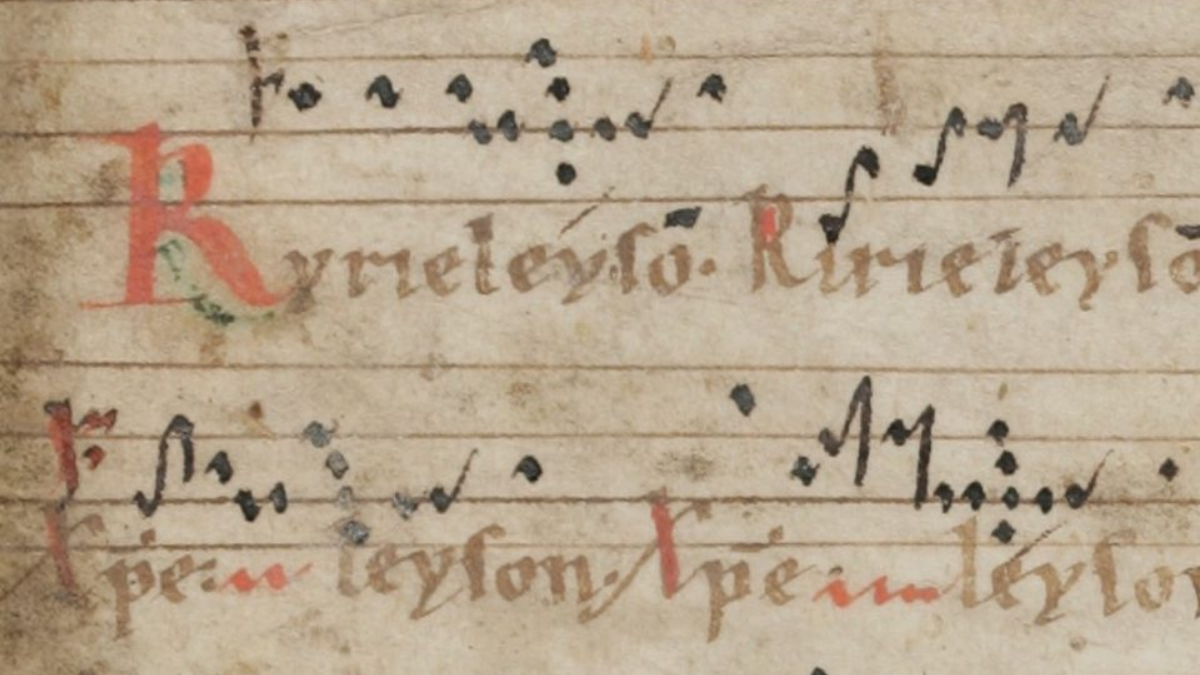 Kyrieleẏsō. Kirieleysō
Xp̄e. leyson. Xp̄e léyson